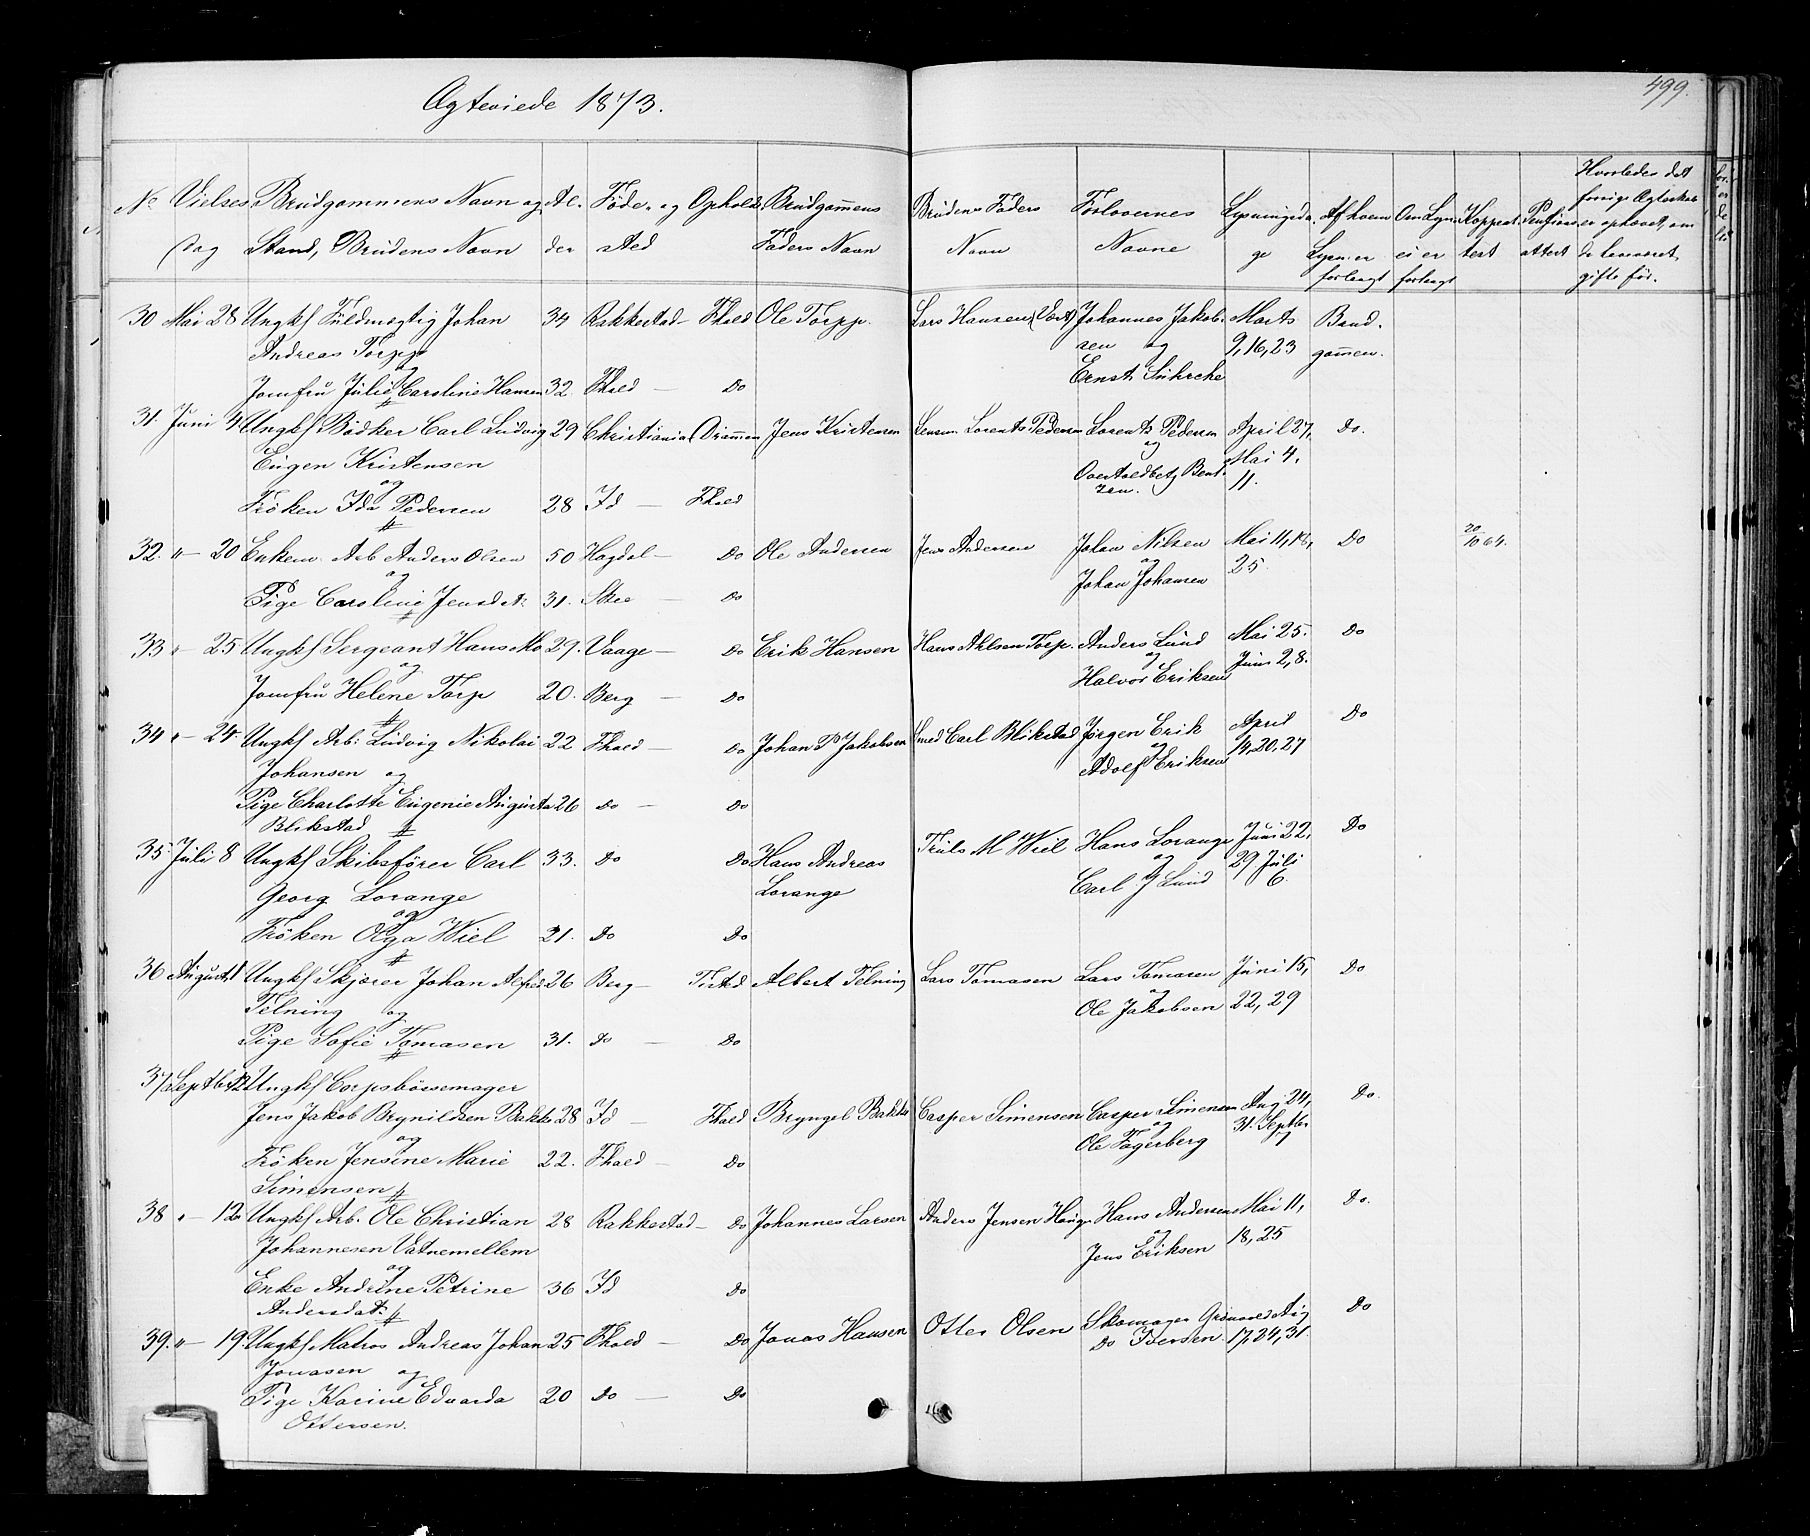 Ægteviede 1873.
499.
No Vielses dag
Brudgommens Navn og Stand, Brudens Navn
Alder
Føde- og Opholdssted
Brudgommens Faders Navn
Brudens Faders Navn
Forlovernes Navne
Lysningsdage
Af hvem Lysn: er forlangt
Om Lysn: ei er forlangt
Koppeattest
Pensions attest
Hvorledes det forrige Ægteskab er ophævet, om de have været gifte før.
30 Mai 28 Ungkf Fuldmægtig Johan 34 Rakkestad - Fhald Ole Torpp. Lars Hansen (Vært) Johannes Jakob- Marts Brud-
Andreas Torpp sen og 9, 16, 23 gommen.
og Ernst Suhrcke
Jomfru Julie Caroline Hansen 32. Fhald - Do
31. Juni 4 Ungkf Bødker Carl Ludvig 29 Christiania Drammen Jens Kristensen Lorents Pedersen Lorents Pedersen April 27, Do.
Eugen Kristensen og Mai 4,
og 11.
Frøken Ida Pedersen 28 Id - Fhald
32. " - 20 Enkem. Arb Anders Olsen 50 Hogdal - Do Ole Andersen Jens Andersen Johan Nilsen Mai 11, 18, Do 20/10 64.
og og 25.
Pige Caroline Jensdat: 31. Skee - Do Johan Johansen
33 " - 25 Ungkf Sergeant Hans Mo 29. Vaage - Do Erik Hansen Hans Ahlsen Torp. Anders Lund Mai 25. Do
og og Juni 2, 8.
Jomfru Helene Torp 20. Berg - Do Halvor Eriksen
34 " - 24. Ungkf Arb: Ludvig Nikolai 22 Fhald - Do Johan P Jakobsen Smed Carl Blikstad Jørgen Erik April Do
Johansen og og 14, 20, 27
Pige Charlotte Eugenie Augusta 26 Do - Do Adolf Eriksen
Blikstad
35. Juli 8 Ungkf Skibsfører Carl 33. Do Do Hans Andreas Truls M Wiel Hans Lorange Juni 22. Do
Georg Lorange Lorange og 29 Juli
og Carl J Lund 6.
Frøken Olga Wiel 21. Do Do
36 August 1 Ungkf Skjærer Johan Alfred 26 Berg - Tistd Albert Telning Lars Tomasen Lars Tomasen Juni 15, Do
Telning og og 22, 29
Pige Sofie Tomasen 31. Do - Do Ole Jakobsen
37 Septbr 12 Ungkf Corpsbøssemager
Jens Jakob Brynildsen Bakke 28 Id - Fhald Bryngel Bakke Casper Simensen Casper Simensen Aug 24, Do.
og og 31. Septbr
Frøken Jensine Marie 22. Fhald - Do Ole Fagerberg 7
Simensen
38 " - 12 Ungkf Arb. Ole Christian 28 Rakkestad - Do Johannes Larsen Anders Jensen Hauge Hans Andersen Mai 11, Do.
Johannesen Vatnemellem og 18, 25
og Jens Eriksen
Enke Andrine Petrine 36 Id Do
Andersdat:
39. " - 19. Ungkf Matros Andreas Johan 25 Fhald - Do Jonas Hansen Otter Olsen Skomager Aug Do
Jonasen og Do Iversen. 17, 24, 31.
Pige Karine Edvarda 20 Do - Do
Ottersen.